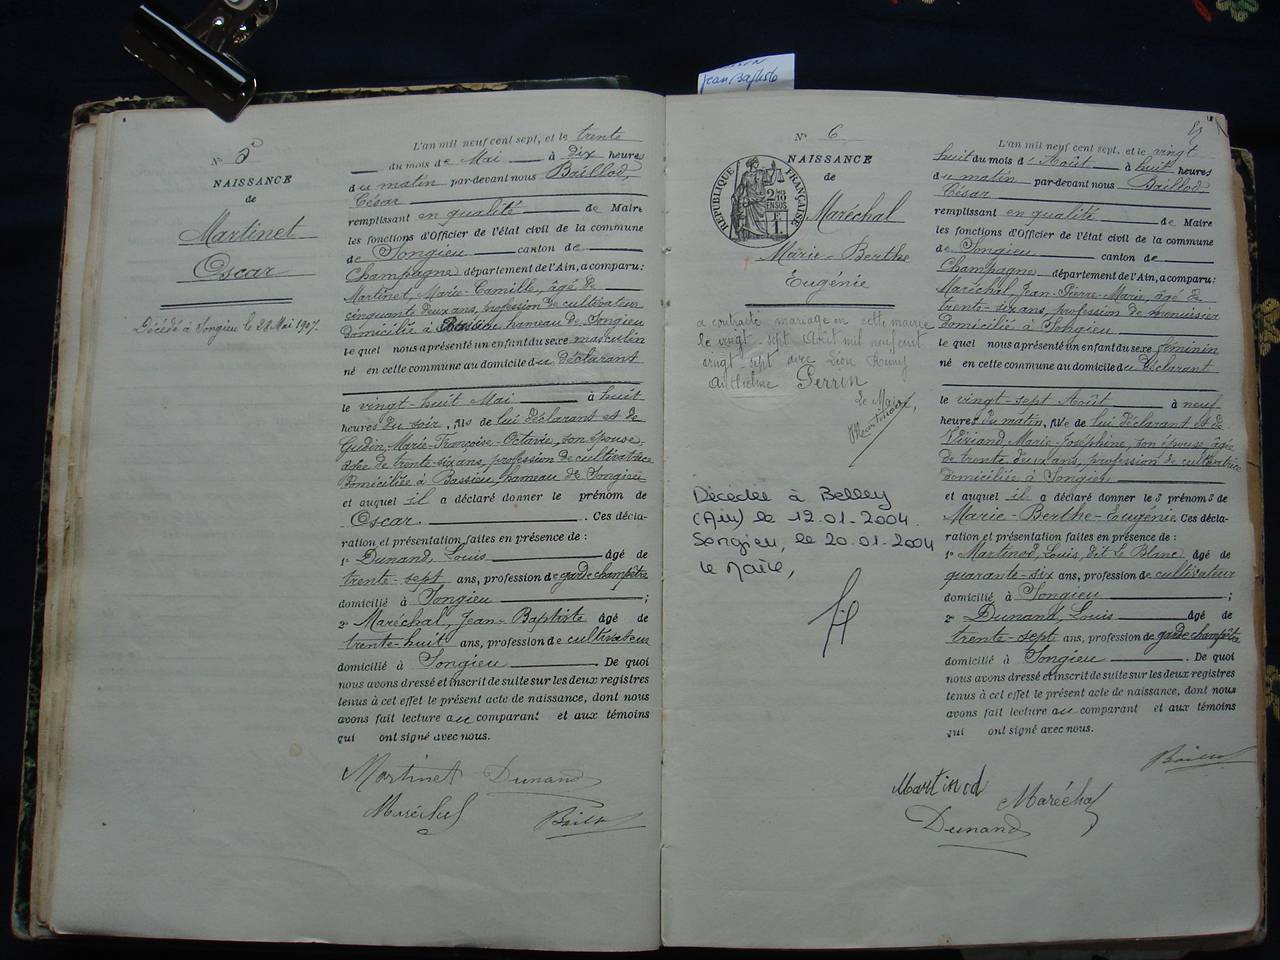 Jean Baptiste
N° 5
NAISSANCE
de
Martinet
Oscar
Décédé à Songieu le 28 Mai 1907.
L'an mil neuf cent sept, et le trente
du mois de Mai à dix heures
du matin par-devant nous Baillod,
César
remplissant en qualité de Maire
les fonctions d'Officier de l'état civil de la commune
de Songieu canton de
Champagne département de l'Ain, a comparu:
Martinet, Marie-Camille, âgé de
cinquante deux ans, profession de cultivateur
domicilié à hameau de Songieu
lequel nous a présenté un enfant du sexe masculin
né en cette commune au domicile du déclarant
le vingt-huit Mai à huit
heures du soir, fils de lui déclarant et de
Gudin, Marie-Françoise-Octavie, son épouse,
âgée de trente-six ans, profession de cultivatrice
domiciliée à Bassieu, hameau de Songieu
et auquel il a déclaré donner le prénom de
Oscar. Ces décla-
ration et présentation faites en présence de :
1° Dunand, Louis âgé de
trente-sept ans, profession de garde champêtre
domicilié à Songieu ;
2° Maréchal, Jean-Baptiste âgé de
trente-huit ans, profession de cultivateur
domicilié à Songieu. De quoi
nous avons dressé et inscrit de suite sur les deux registres
tenus à cet effet le présent acte de naissance, dont nous
avons fait lecture au comparant et aux témoins
qui ont signé avec nous.
Martinet Dunand
Maréchal Baillod
N° 6
NAISSANCE
de
RÉPUBLIQUE FRANÇAISE
Maréchal
Marie-Berthe
Eugénie
a contracté mariage en cette mairie
le vingt-sept Août mil neuf cent
vingt-sept avec Léon Rémy
Anthelme Perrin
Le Maire,
Décédée à Belley
(Ain) le 12.01.2004.
Songieu, le 20.01.2004
Le Maire,
L'an mil neuf cent sept, et le vingt
huit du mois d'Août à huit heures
du matin par-devant nous Baillod
César
remplissant en qualité de Maire
les fonctions d'Officier de l'état civil de la commune
de Songieu canton de
Champagne département de l'Ain, a comparu:
Maréchal Jean-Pierre-Marie, âgé de
trente-six ans, profession de menuisier
domicilié à Songieu
lequel nous a présenté un enfant du sexe féminin
né en cette commune au domicile du déclarant
le vingt-sept Août à neuf
heures du matin, fille de lui déclarant et de
Viviand, Marie-Joséphine, son épouse, âgée
de trente deux ans, profession de cultivatrice
domiciliée à Songieu
et auquel il a déclaré donner les prénoms de
Marie-Berthe-Eugénie Ces décla-
ration et présentation faites en présence de :
1° Martinod, Louis, dit Le Blanc âgé de
quarante-six ans, profession de cultivateur
domicilié à Songieu ;
2° Dunand, Louis âgé de
trente-sept ans, profession de garde champêtre
domicilié à Songieu. De quoi
nous avons dressé et inscrit de suite sur les deux registres
tenus à cet effet le présent acte de naissance, dont nous
avons fait lecture au comparant et aux témoins
qui ont signé avec nous.
Baillod
Martinod Maréchal
Dunand